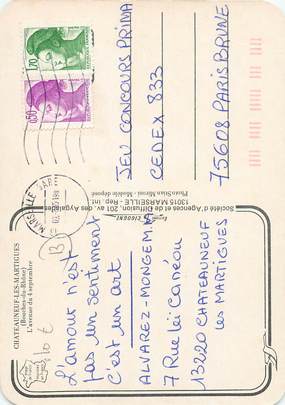 CHATEAUNEUF-LES-MARTIGUES
(Bouches-du-Rhône)
L'avenue du 4 septembre
L'amour n'est
pas un sentiment
c'est un art
ALVAREZ-MONGEMA
7 Rue
13220 CHATEAUNEUF
LES MARTIGUES
Société d'Agences et de Diffusion, 201 av. des Aygalades
13015 MARSEILLE - Modèle déposé
Rep. int.
1,70
0,50
MARSEILLE GARE
JEU CONCOURS PRIMA
CEDEX 833
75608 PARIS BRUNE